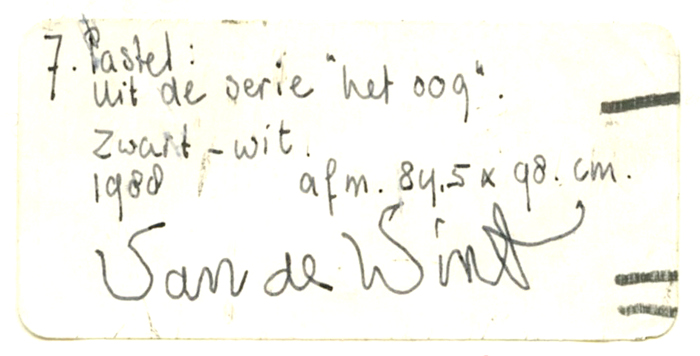 7. Pastel:
uit de serie "het oog".
zwart-wit.
1988 afm. 84,5 x 98. cm.
Van de Wint